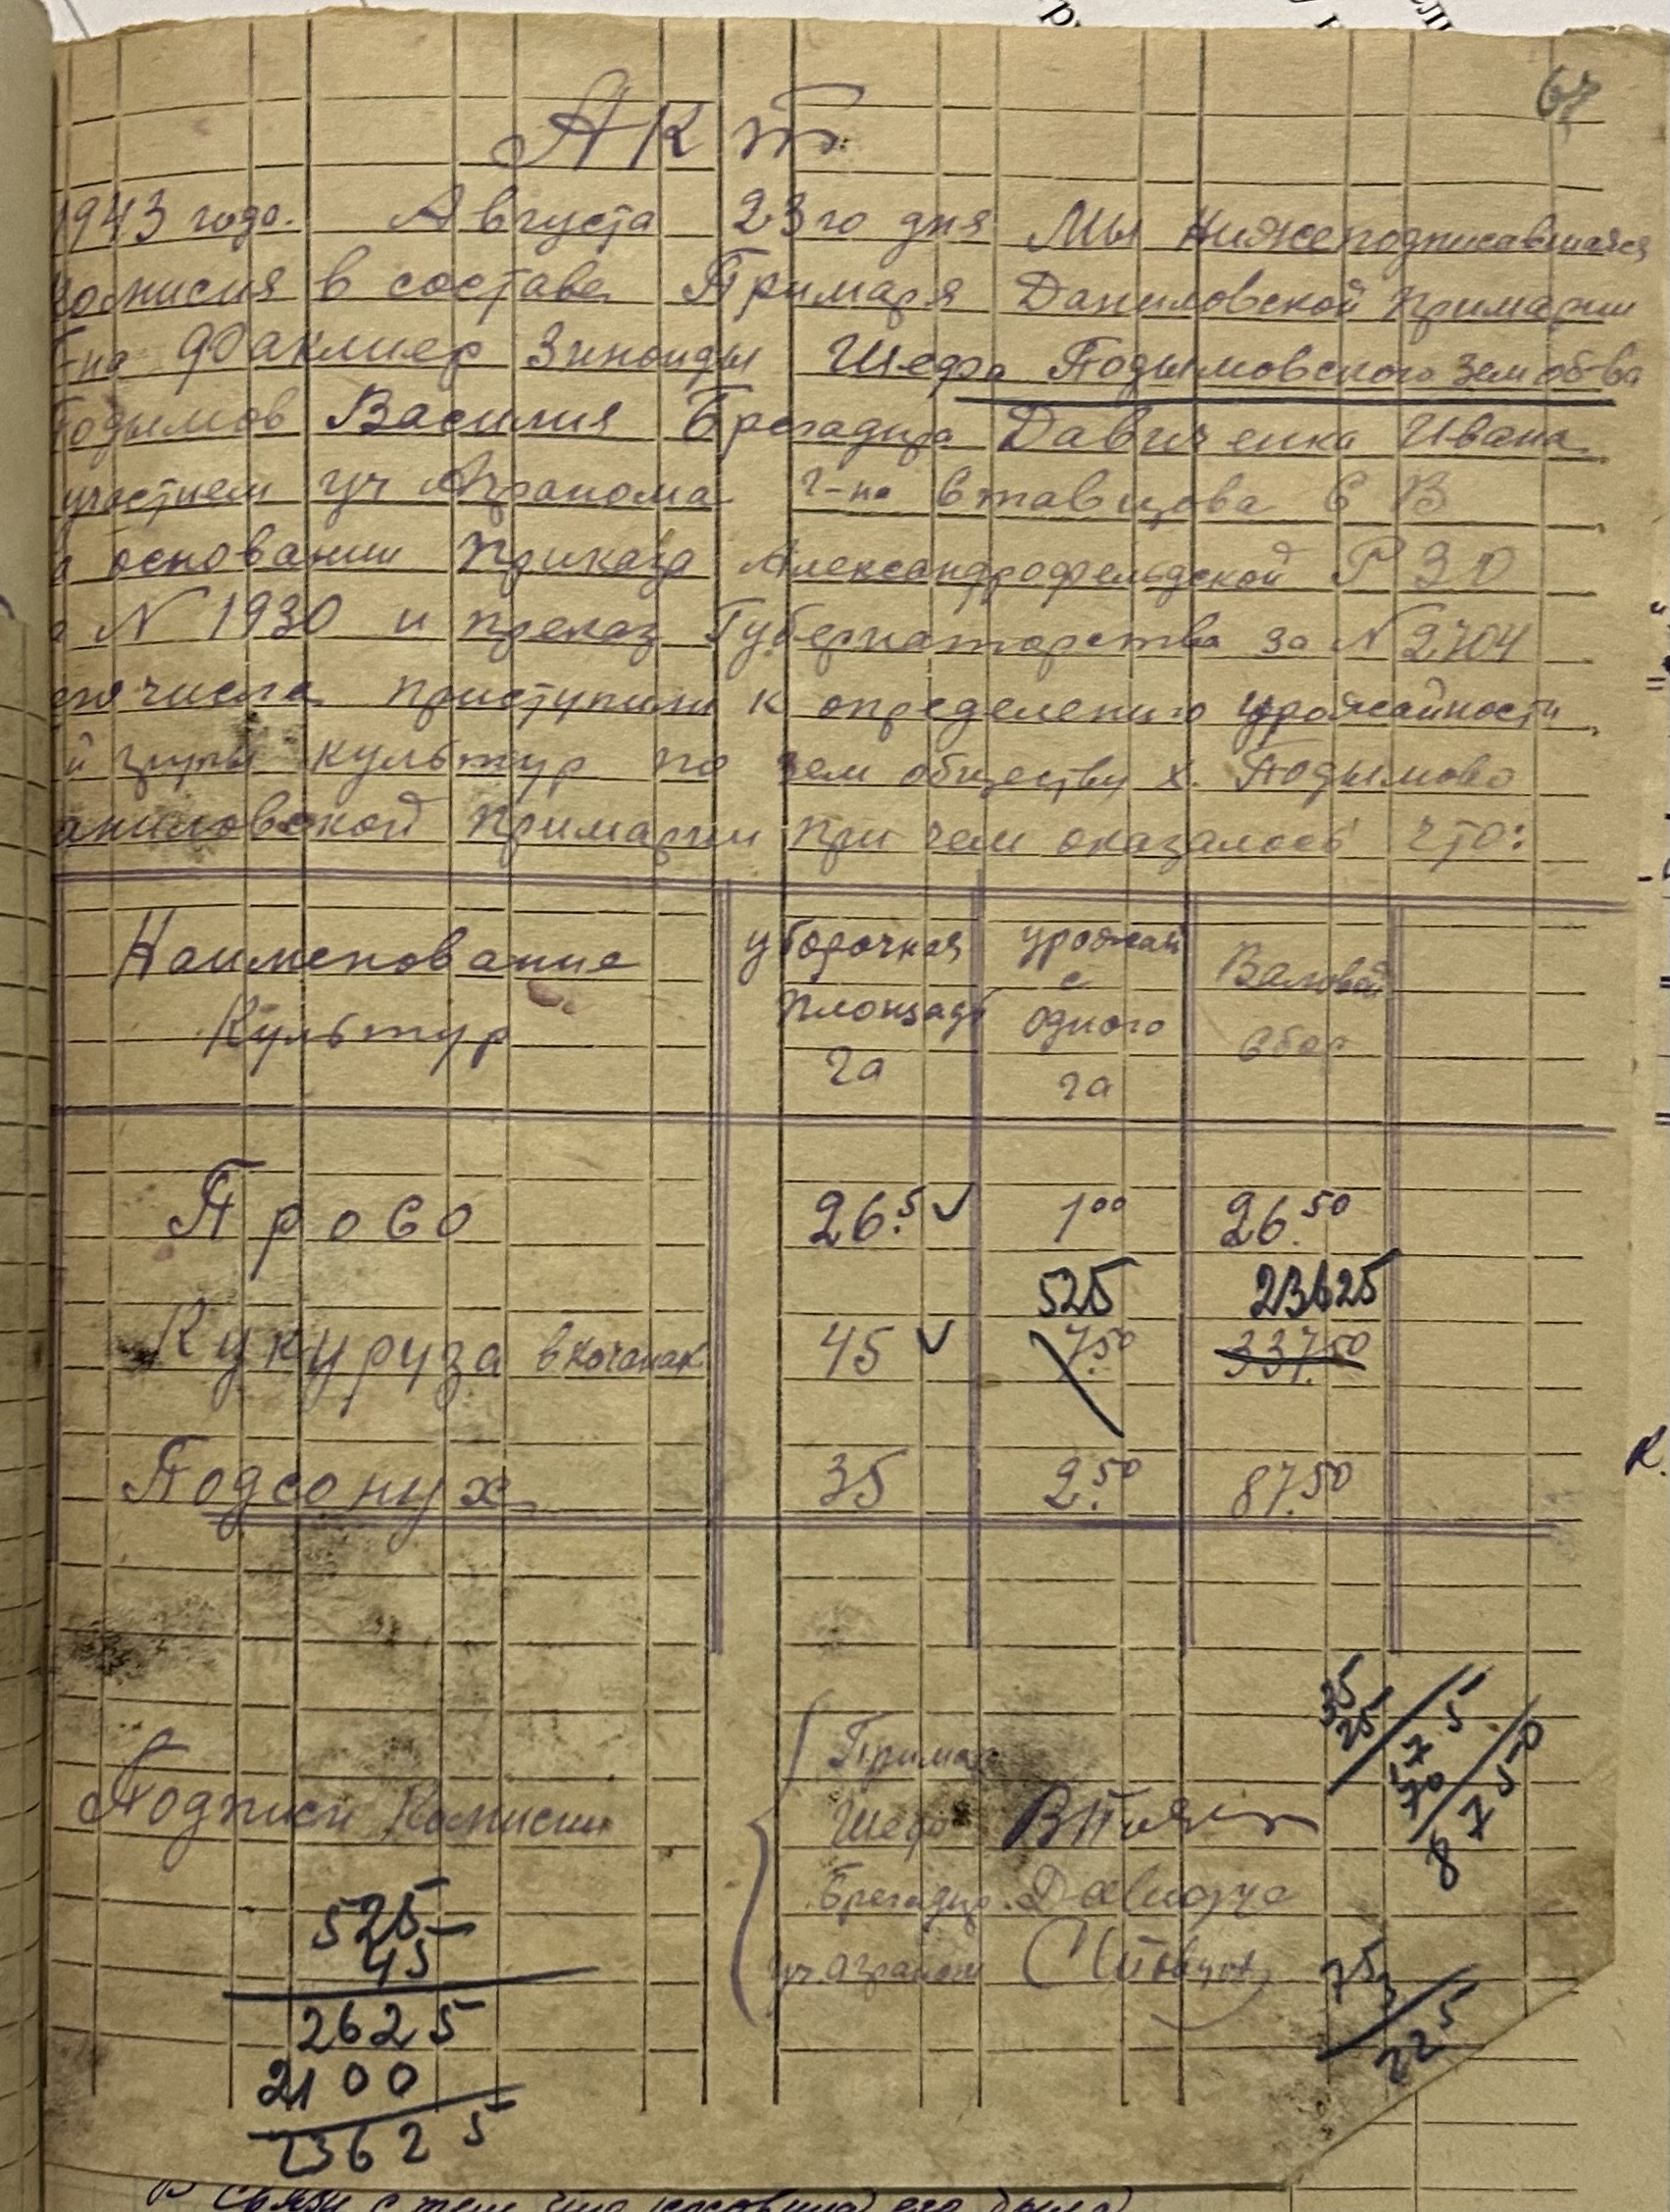 67
Акт
1943 года. Августа 23го дня Мы Нижеподписавшаяся
комисия в составе Примаря Даниловской примарии
г-на Факлиер Зиноиды Шефа Подымовского зем об-ва
Подымов Василия Брегадира Давиченка Ивана
участием уч Агранома г-на
основании приказа Александрофельдской РЗО
N 1930 и преказ Губернаторства за N 2704
числа приступили к определению урожайности
й групы культур по зем обществу х. Подымово
аниловской примарии при чем оказалось что:
Наименование Культур
уборочная площадь га
урожай с одного га
Валовой сбор
Просо 26.5 ✓ 1 00 26.50
525 23625
Кукуруза в кочанах 45 ✓ 7.50 337.50
Подсонух 35 2.50 87.50
Подписи Камисии
Примар
Шеф
Брегадир.
уч. агроном
35
25
175
70
875 0
75
3
225
525
45
2625
2100
23625
В связи с тем что